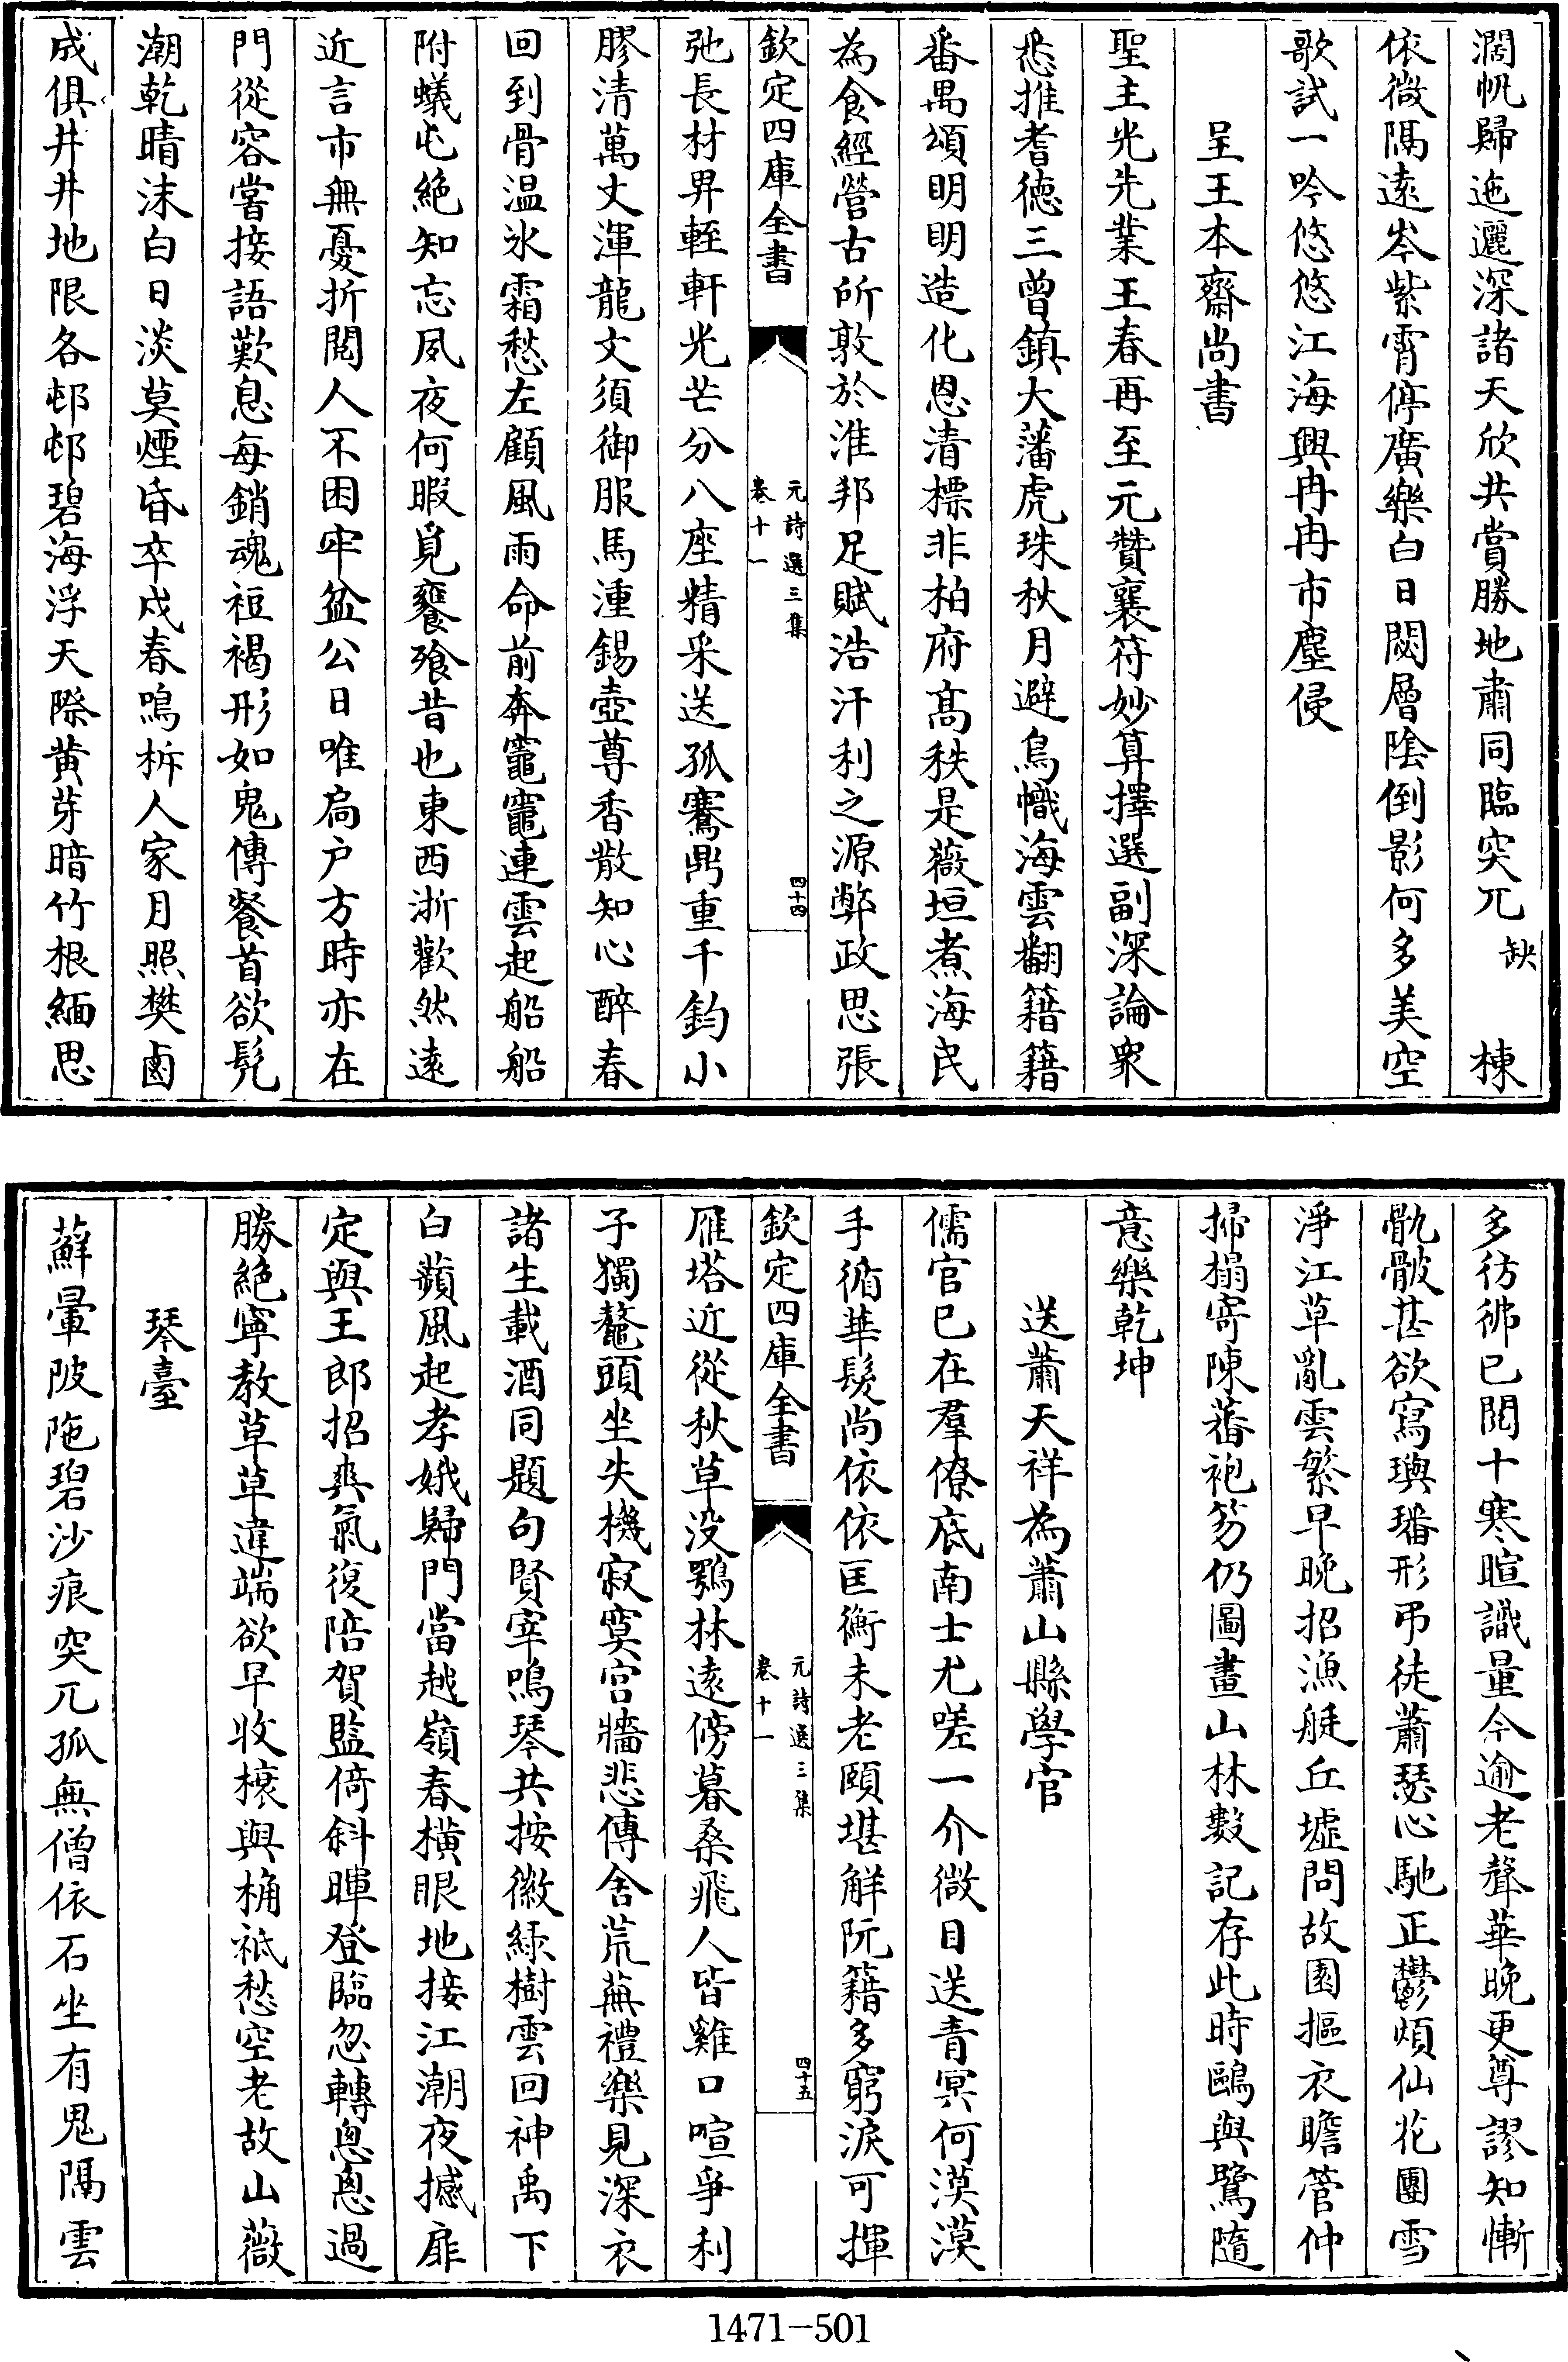 濶帆歸迤邐深諸天欣共賞勝地肅同臨突兀缺棟
依微隔遠岑紫霄停廣樂白日閟層陰倒影何多美空
歌試一吟悠悠江海興冉冉市塵侵
呈王本齋尚書
聖主光先業王春再至元贊襄符妙算擇選副深論衆
悉推耆德三曾鎮大藩虎珠秋月避烏幟海雲翻籍籍
番禺頌明明造化恩清標非柏府髙秩是薇垣煮海民
為食經營古所敦於淮邦足賦浩汗利之源弊政思張
欽定四庫全書
元詩選三集
卷十一
四十四
弛長材畀輊軒光芒分八座精采送孤騫鼎重千鈞小
膠清萬丈渾龍文須御服馬湩錫壺尊香散知心醉春
回到骨温氷霜愁左顧風雨命前奔竈竈連雲起船船
附蟻屯絶知忘夙夜何暇覓饔飱昔也東西浙歡然遠
近言市無憂折閲人不困牢盆公日唯扃户方時亦在
門從容嘗接語歎息每銷魂袒褐形如鬼傳餐首欲髠
潮乾晴沫白日淡莫煙昏卒戍春鳴柝人家月照樊鹵
成俱井井地限各邨邨碧海浮天際黄芽暗竹根緬思
多彷彿已閲十寒暄識量今逾老聲華晚更尊謬知慚
骯髒甚欲寫璵璠形弔徒蕭瑟心馳正鬱煩仙花團雪
淨江草亂雲繁早晚招漁艇丘墟問故園摳衣瞻管仲
掃榻寄陳蕃袍笏仍圖畫山林數記存此時鷗與鷺隨
意樂乾坤
送蕭天祥為蕭山縣學官
儒官已在羣僚底南士尤嗟一介微目送青冥何漠漠
手循華髮尚依依匡衡未老頤堪解阮籍多窮淚可揮
欽定四庫全書
元詩選三集
卷十一
四十五
雁塔近從秋草没鶚林遠傍暮桑飛人皆雞口喧爭利
子獨鼇頭坐失機寂寞宫牆悲傳舍荒蕪禮樂見深衣
諸生載酒同題句賢宰鳴琴共按徽緑樹雲回神禹下
白蘋風起孝娥歸門當越嶺春横眼地接江潮夜撼扉
定與王郎招爽氣復陪賀監倚斜暉登臨忽轉悤悤過
勝絶寧教草草違端欲早收榱與桷衹愁空老故山薇
琴臺
蘚暈陂陁碧沙痕突兀孤無僧依石坐有鬼隔雲
1471-501